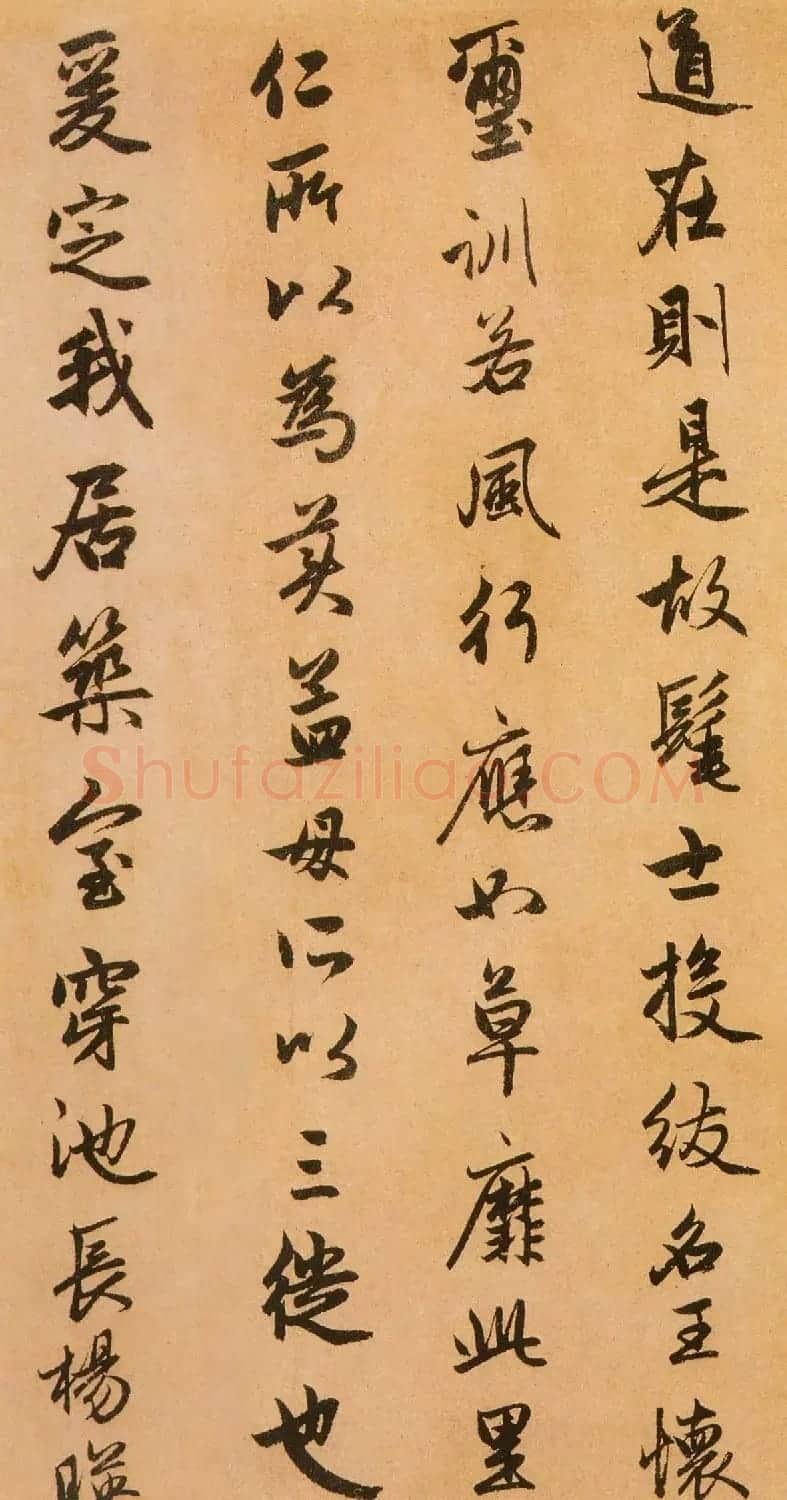 道在則是故髦士投紱名王懷
璽訓若風行應如草靡此里
仁所以為美孟母所以三徙也
爰定我居築室穿池長楊
Shufaziliao.COM